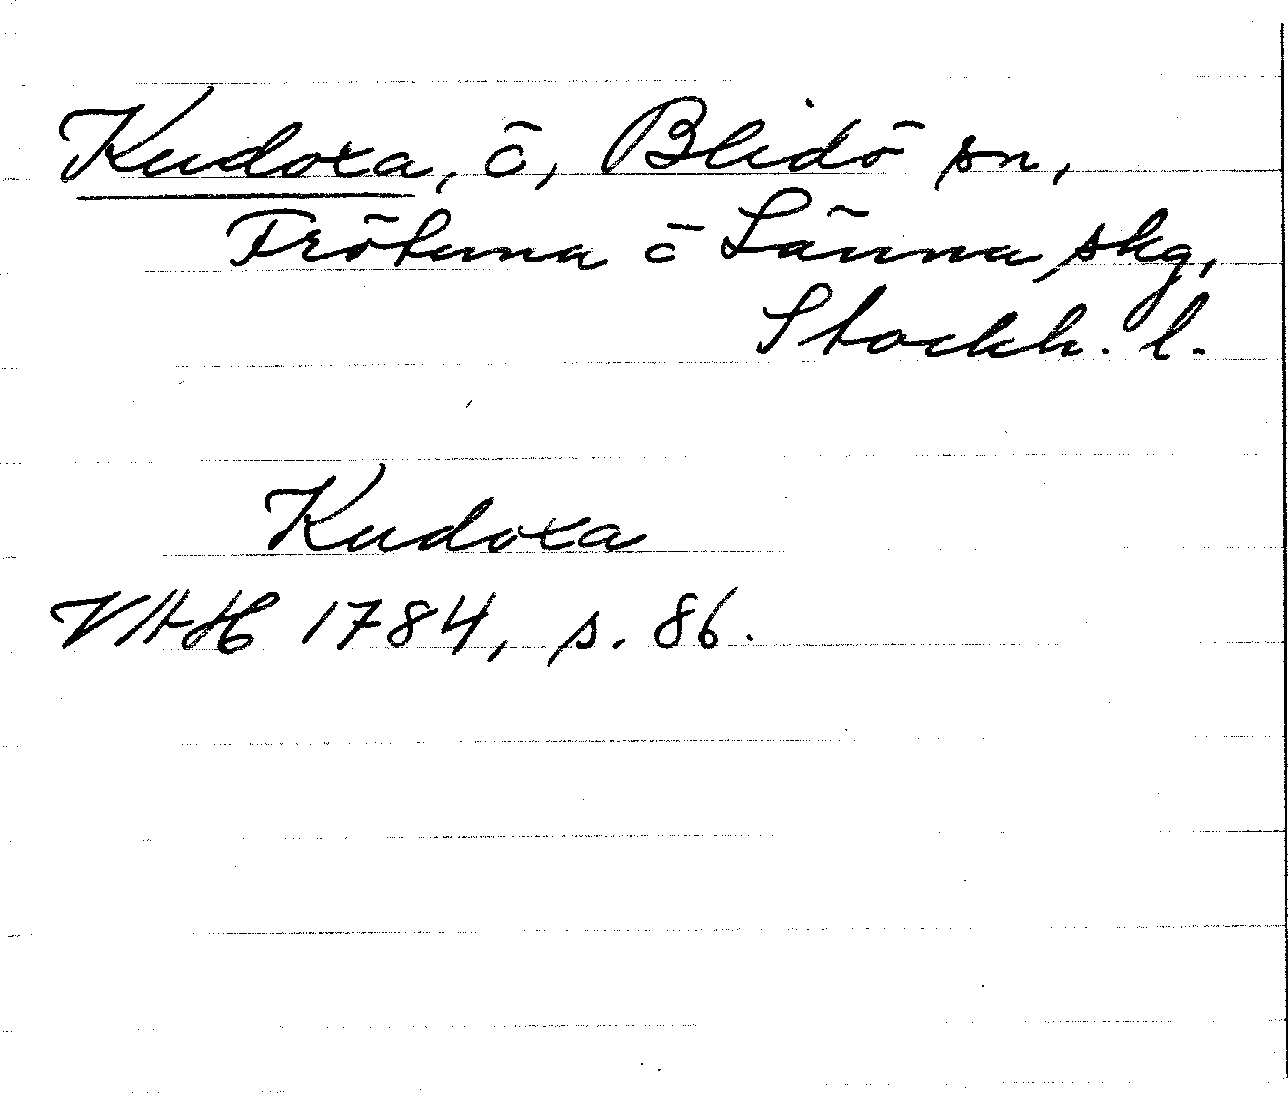 Kudoxa, ö, Blidö sn,
Frötuna o Länna skg,
Stockh. l.
Kudoxa
VAH 1784, s. 86.